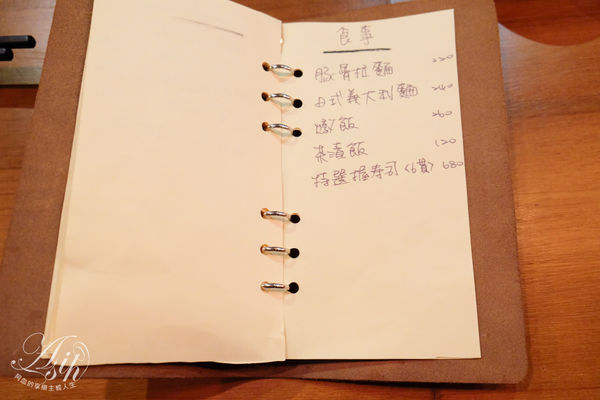 食事
豚骨拉麵 220
日式義大利麵 240
燉飯 260
茶漬飯 120
特選握寿司(6貫) 680
Asih
阿血的享樂主義人生